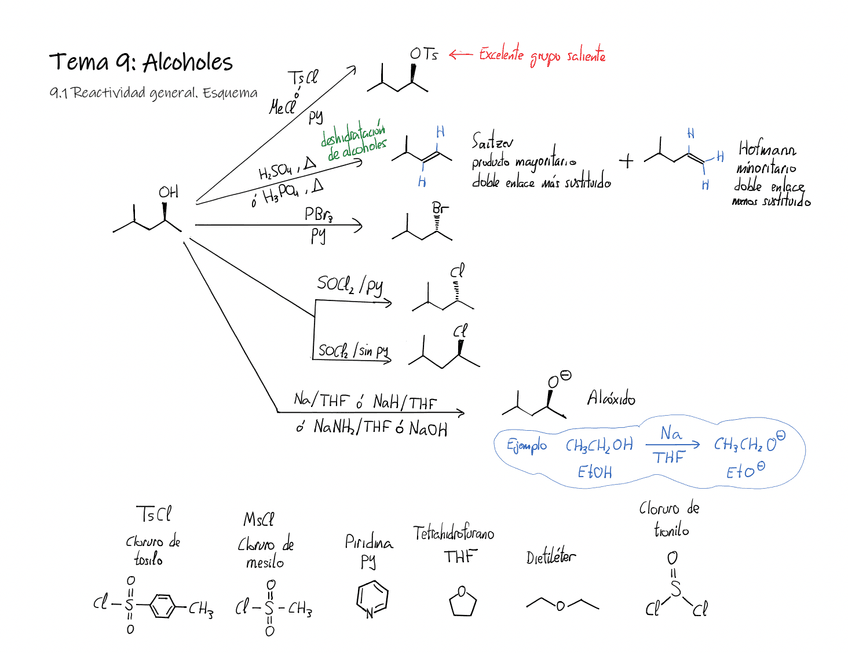 Tema 9: Alcoholes
9.1 Reactividad general. Esquema
TsCl
ó
MeCl
py
OTs ← Excelente grupo saliente
deshidratación
de alcoholes
H₂SO₄, Δ
ó H₃PO₄, Δ
H
H
Saitzev
producto mayoritario
doble enlace más sustituido
+
H
H
H
Hofmann
minoritario
doble enlace
menos sustituido
OH
PBr₃
py
Br
SOCl₂/py
Cl
SOCl₂/sin py
Cl
Na/THF ó NaH/THF
ó NaNH₂/THF ó NaOH
O⊖
Alcóxido
Ejemplo CH₃CH₂OH Na → CH₃CH₂O⊖
THF
EtOH EtO⊖
TsCl
Cloruro de
tosilo
O
Cl-S-CH₃
O
MsCl
Cloruro de
mesilo
O
Cl-S-CH₃
O
Piridina
py
N
Tetrahidrofurano
THF
O
Dietiléter
O
Cloruro de
tionilo
O
S
Cl Cl